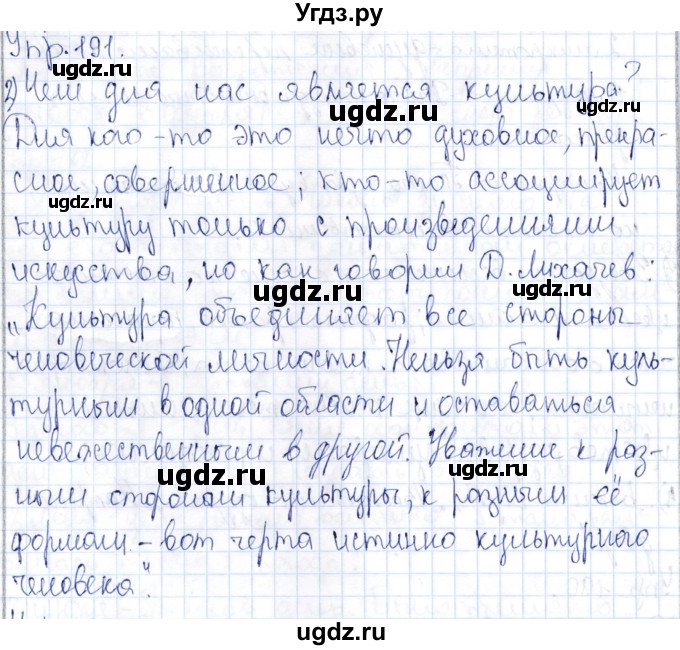 Угдз.ру
Упр. 191.
ugdz.ru
2) Чем для нас является культура?
ugdz.ru
ugdz.ru
Для кого-то это нечто духовное, прекра-
сное, совершенное; кто-то ассоциирует
ugdz.ru
культуру только с произведениями
искусства, но как говорил Д. Лихачев:
ugdz.ru
„Культура объединяет все стороны
человеческой личности. Нельзя быть куль-
турным в одной области и оставаться
невежественным в другой. Уважение к раз-
ugdz.ru
ugdz.ru
ным сторонам культуры, к разным её
формам – вот черта истинно культурного
человека".
ugdz.ru
ugdz.ru